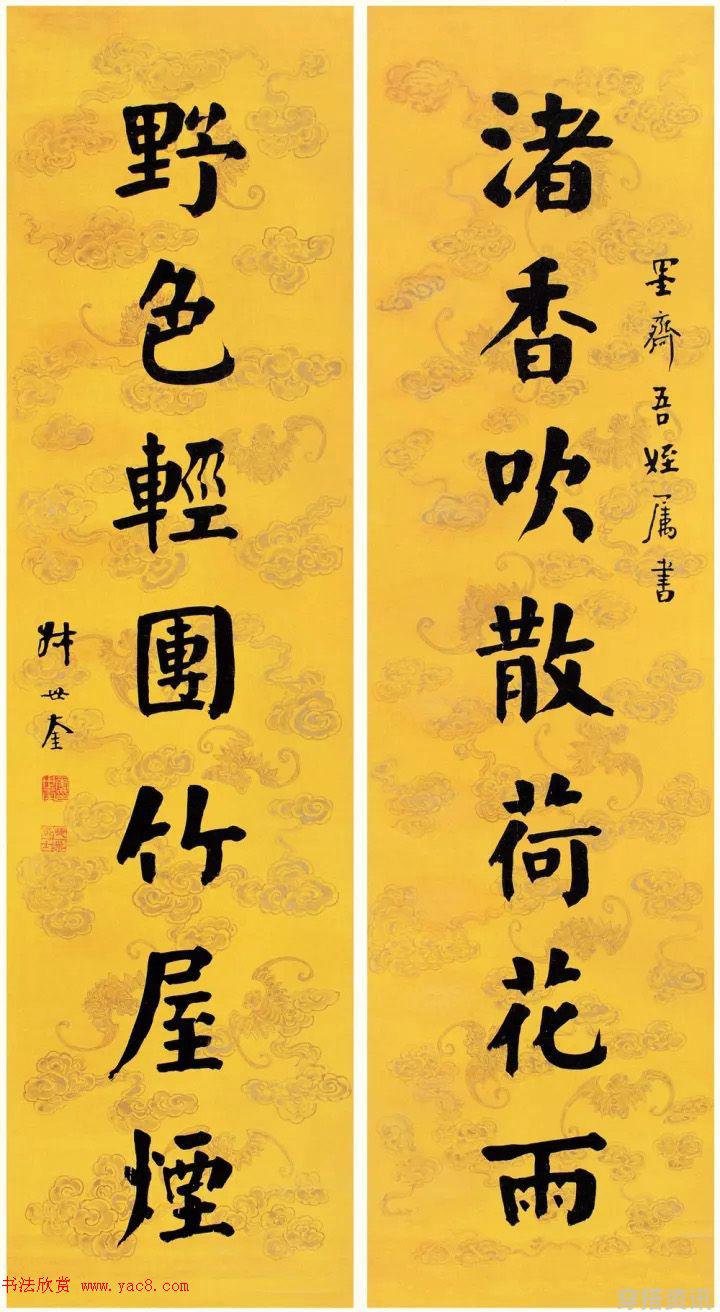 渚香吹散荷花雨
墨齋吾姪屬書
野色輕團竹屋煙
世奎
书法欣赏 www.yac8.com